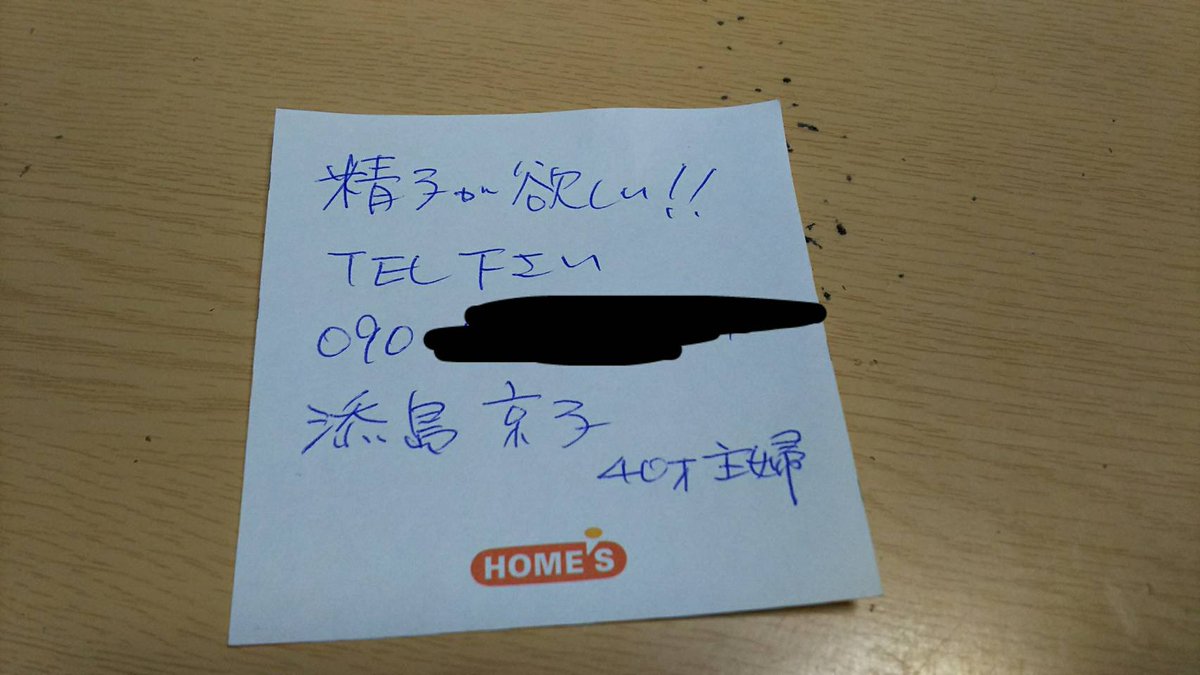 精子が欲しい!!
TEL下さい
090
添島 京子
40才主婦
HOME'S